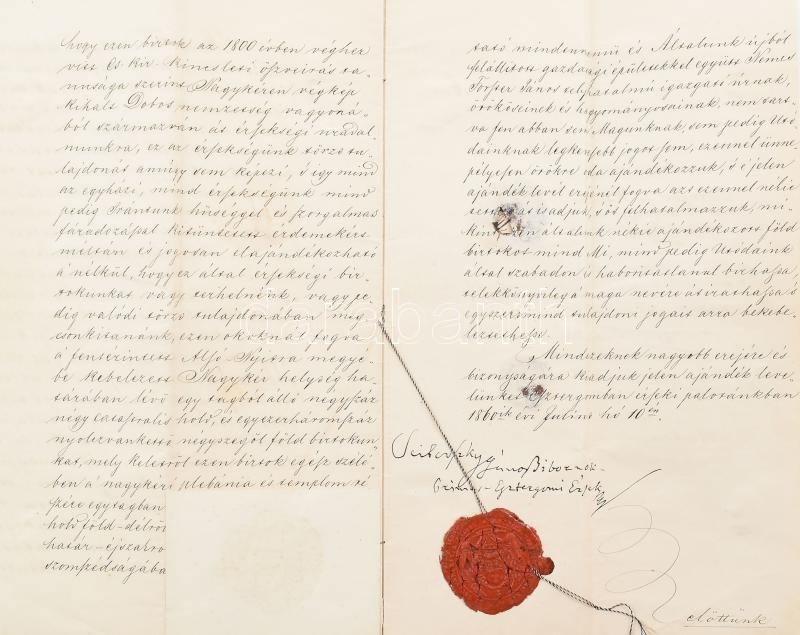 hogy ezen birtok az 1800 évben véghez
vitt Cs kir kincsleti összeirás ta-
nusága szerint Nagykéren végkép
kihalt Dobos nemzetség vagyoná-
ból származván át érsekségi uradal
munkra, ez az érsekségünk törzstu-
lajdonát amúgy sem képezi, s igy mind
az egyházi, mind érsekségünk mind
pedig Irántunk hüséggel és szorgalmas
fáradozással kitüntetett érdemekért
méltán és jogosan elajándékozható
a nélkül, hogy ez által érsekségi bir-
tokunkat vagy terhelnénk, vagy pe-
dig valódi törzs tulajdonában meg
csonkitanánk, ezen okoknál fogva
a fenszerintett Alsó Nyitra megyé-
be kebelezett Nagykér helység ha-
tárában lévő egy tagból álló négyszáz
négy catastralis hold, és egyezerháromszáz
nyolczvankettő négyszegöl föld birtokun
kat, mely keletről ezen birtok egész szélé-
ben a nagykéri plebánia és templom ré
szére egytagban
hold föld – délről
határ – éjszakro
szomszédságába
tató mindennemü és Általunk újból
felállitott gazdasági épületekkel együtt Nemes
Forster János teljhatalmu igazgató úrnak,
örököseinek és hagyományosainak, nem tart-
va fen abban sem Magunknak, sem pedig Utó-
dainknak legkissebb jogot sem, ezennel ünne-
pélyesen örökre oda ajándékozzuk, s é jelen
ajándék levél erejénél fogva azt ezennel nékie
át is adjuk, s őt felhatalmazzuk, mi-
kint ezen általunk nekie ajándékozott föld
birtokot mind Mi, mind pedig Utódaink
által szabadon s háboritatlanul birhassa,
telekkönyvileg a maga nevére átirathassa s
egyszersmind tulajdoni jogait arra bekebe-
leztethesse.
Mindezeknek nagyobb erejére és
bizonyságára kiadjuk jelen ajándék leve-
lünket Esztergomban érseki palotánkban
1860ik évi Julius hó 10én.
Scitovszky János Bibornok-
Primás- Esztergomi Érsek
előttünk